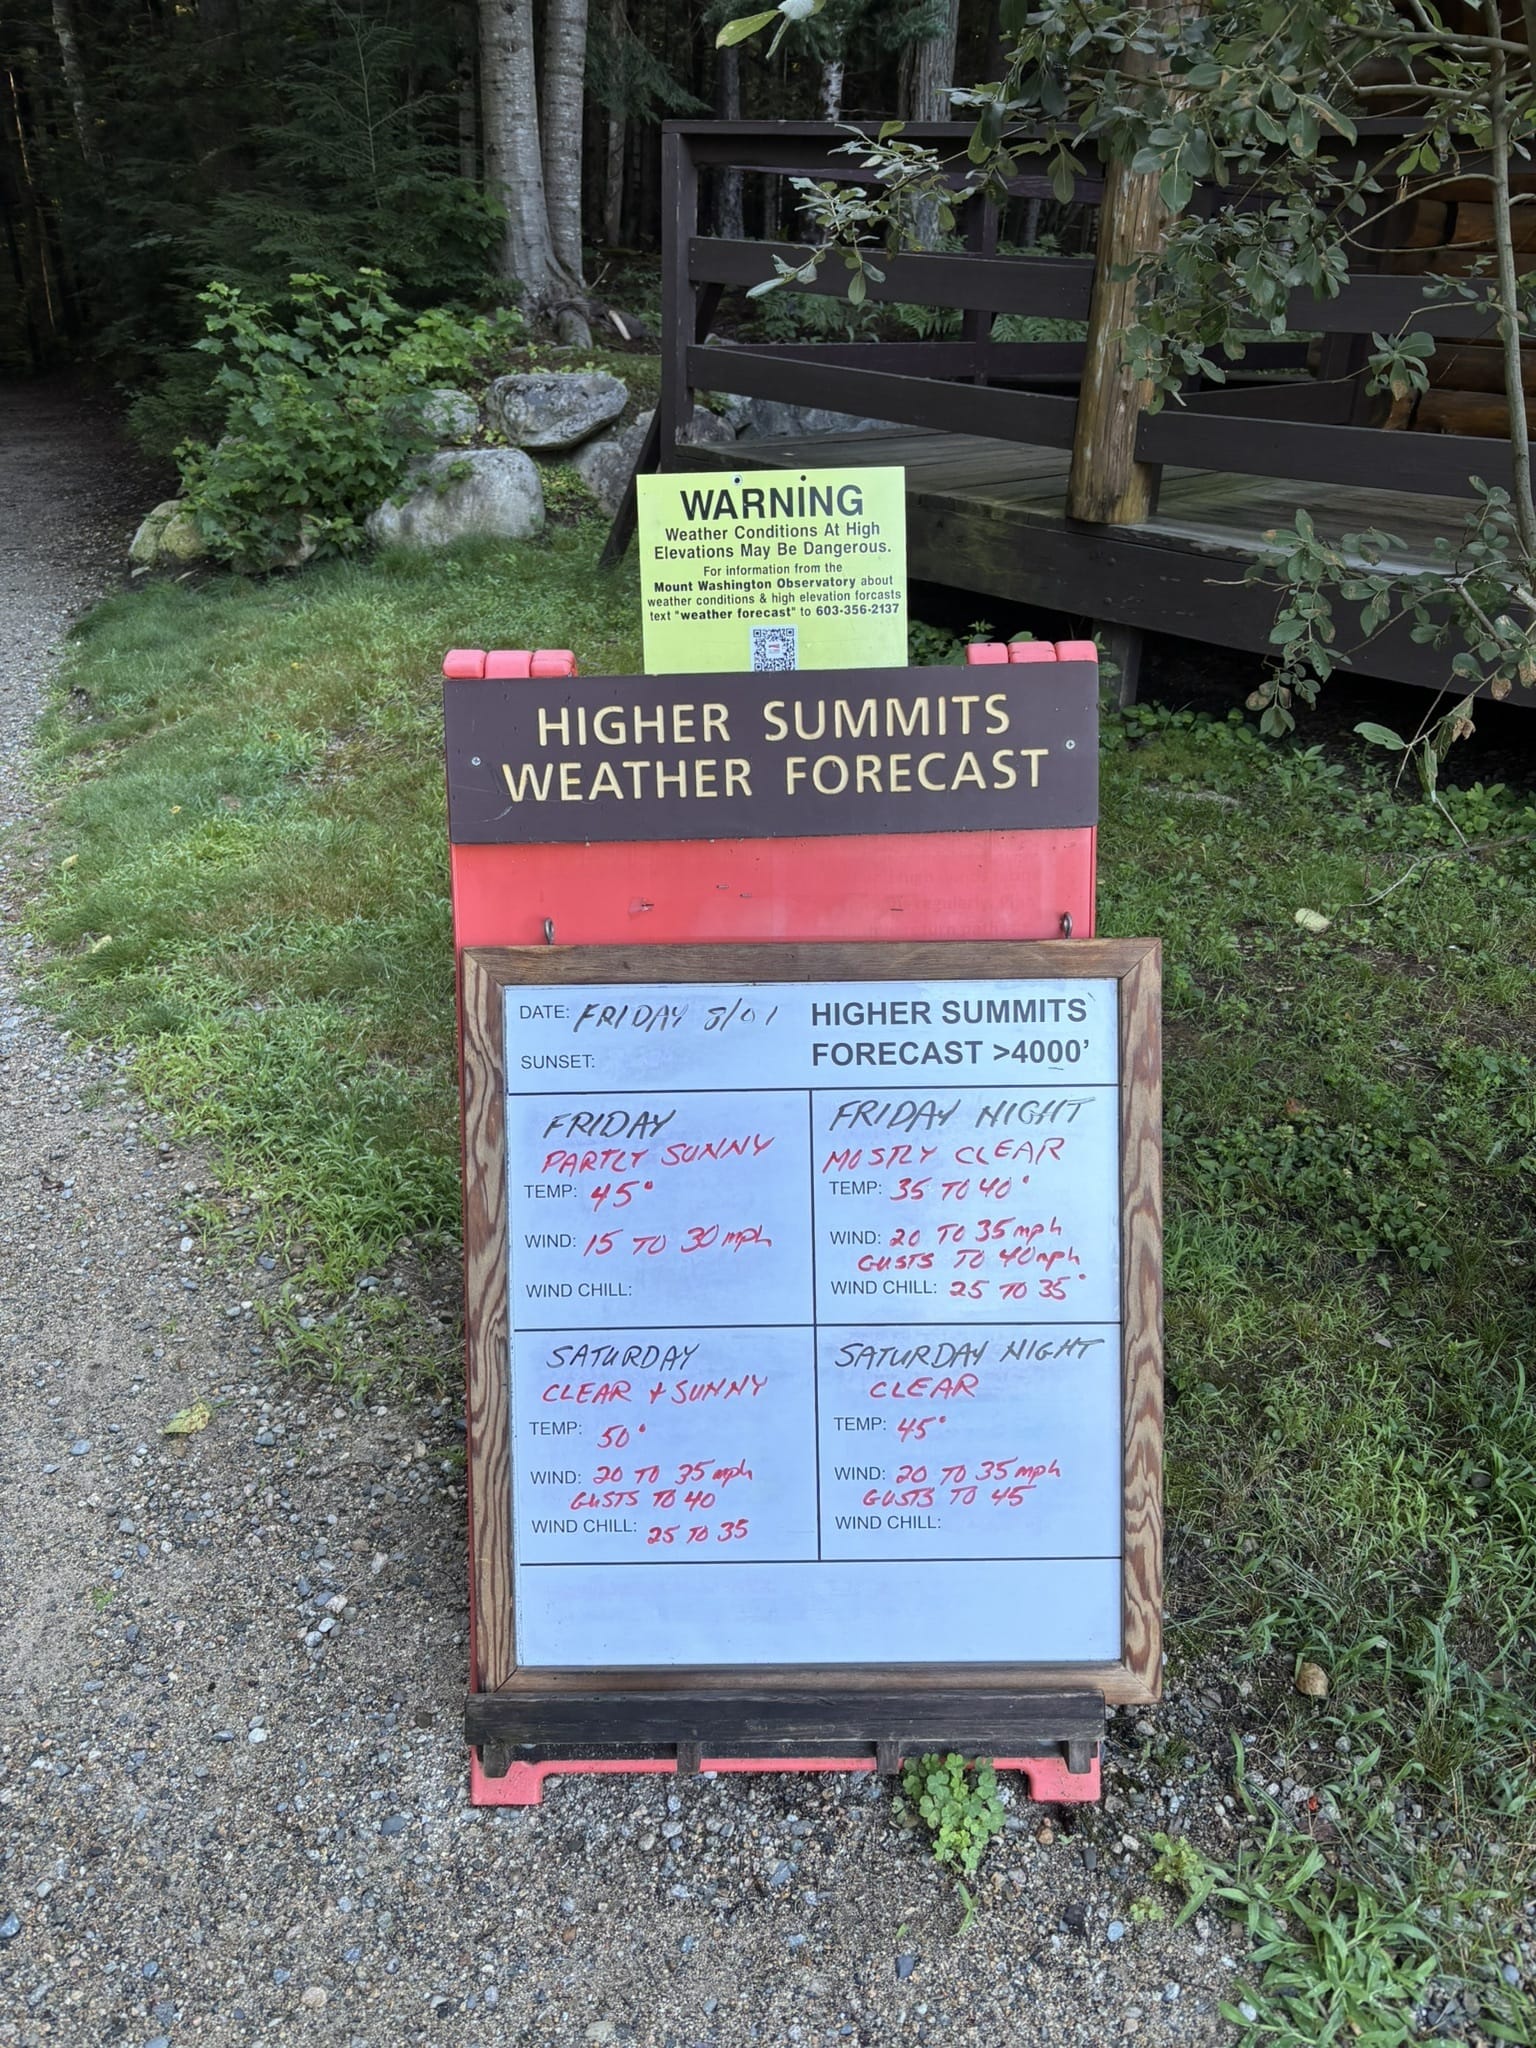 WARNING
Weather Conditions At High
Elevations May Be Dangerous.
For information from the
Mount Washington Observatory about
weather conditions & high elevation forcasts
text "weather forecast" to 603-356-2137
HIGHER SUMMITS
WEATHER FORECAST
DATE: FRIDAY 8/01
SUNSET:
HIGHER SUMMITS
FORECAST >4000'
FRIDAY
PARTLY SUNNY
TEMP: 45°
WIND: 15 TO 30 mph
WIND CHILL:
FRIDAY NIGHT
MOSTLY CLEAR
TEMP: 35 TO 40°
WIND: 20 TO 35 mph
GUSTS TO 40 mph
WIND CHILL: 25 TO 35°
SATURDAY
CLEAR + SUNNY
TEMP: 50°
WIND: 20 TO 35 mph
GUSTS TO 40
WIND CHILL: 25 TO 35
SATURDAY NIGHT
CLEAR
TEMP: 45°
WIND: 20 TO 35 mph
GUSTS TO 45
WIND CHILL: